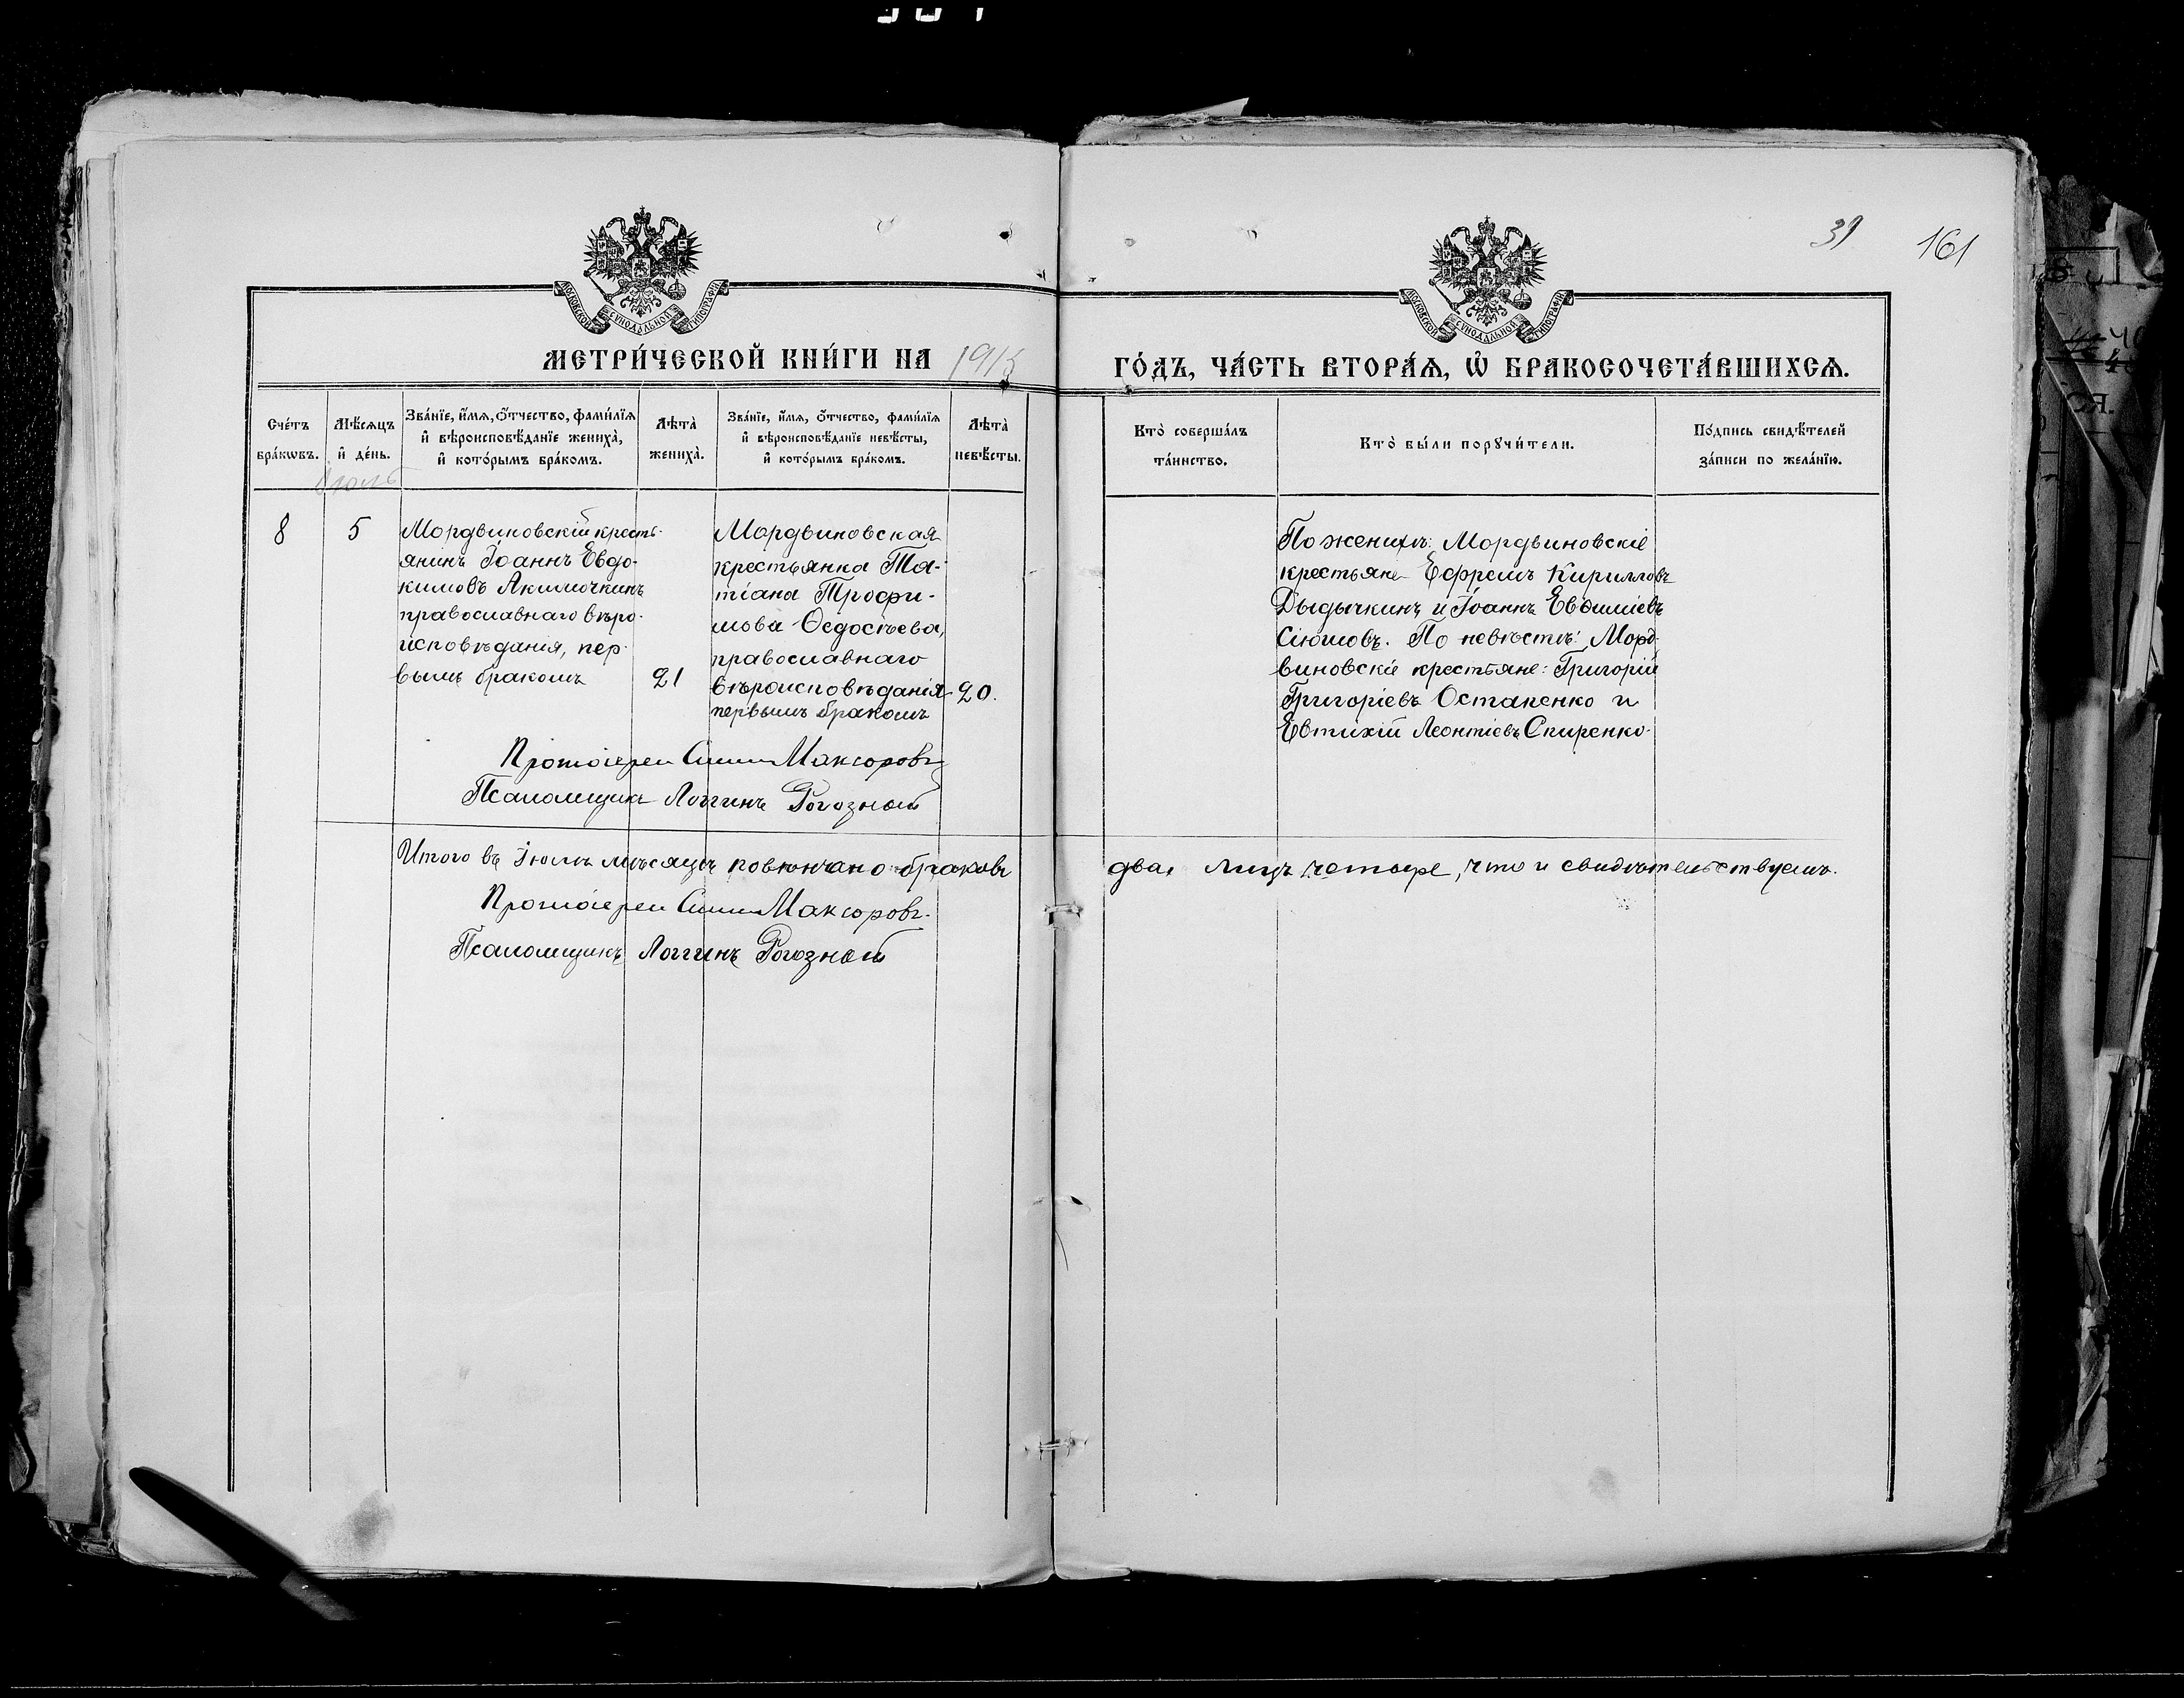 31 161
МОСКОВСКОЙ СѴНОДАЛЬНОЙ ТИПОГРАФІИ
МОСКОВСКОЙ СѴНОДАЛЬНОЙ ТИПОГРАФІИ
МЕТРИ́ЧЕСКОЙ КНИ́ГИ НА 1915 ГО́ДЪ, ЧА́СТЬ ВТОРА́Ѧ, Ѡ҆ БРАКОСОЧЕТА́ВШИХСѦ.
Сче́тъ
бра́кѡвъ.
Мѣ́сѧцъ
и҆ де́нь.
Зва́нїе, и҆́мѧ, ѻ҆́тчество, фами́лїѧ
и҆ вѣроисповѣ́данїе жениха̀,
и҆ кото́рымъ бра́комъ.
Лѣта̀
жениха̀.
Зва́нїе, и҆́мѧ, ѻ҆́тчество, фами́лїѧ
и҆ вѣроисповѣ́данїе невѣ́сты,
и҆ кото́рымъ бра́комъ.
Лѣта̀
невѣ́сты.
Кто̀ соверша́лъ
та́инство.
Кто̀ бы́ли порꙋчи́тели.
По́дпись свидѣ́телей
за́писи по жела́нїю.
Іюль
8
5
Мордвиновскій кресть-
янинъ Іоаннъ Евдо-
кимовъ Акимочкинъ
православнаго вѣро-
исповѣданія, пер-
вымъ бракомъ
21
Мордвиновская
крестьянка Та-
тіана Трофи-
мова Ѳедосѣева,
православнаго
вѣроисповѣданія
первымъ бракомъ
20.
По женихѣ: Мордвиновскіе
крестьяне Ефремъ Кирилловъ
Дыдычкинъ и Іоаннъ Евѳиміевъ
Сіюмовъ. По невѣстѣ: Морд-
виновскіе крестьяне: Григорій
Григоріевъ Остапенко и
Евтихій Леонтіевъ Спиренко.
Протоіерей Максоровъ
Псаломщикъ Логгинъ Рогозный
Итого въ Іюлѣ мѣсяцѣ повѣнчано браковъ два, лицъ четыре, что и свидѣтельствуемъ.
Протоіерей Максоровъ.
Псаломщикъ Логгинъ Рогозный